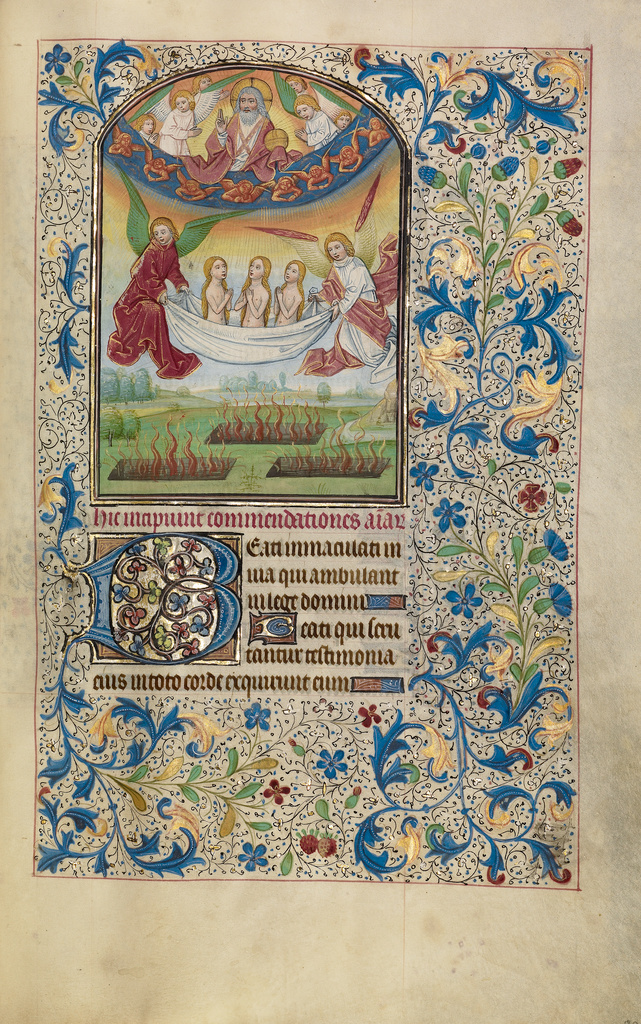 hic incipiunt commendationes aiar
Beati immaculati in
uia qui ambulant
in lege domini
Beati qui scru
tantur testimonia
eius in toto corde exquirunt eum